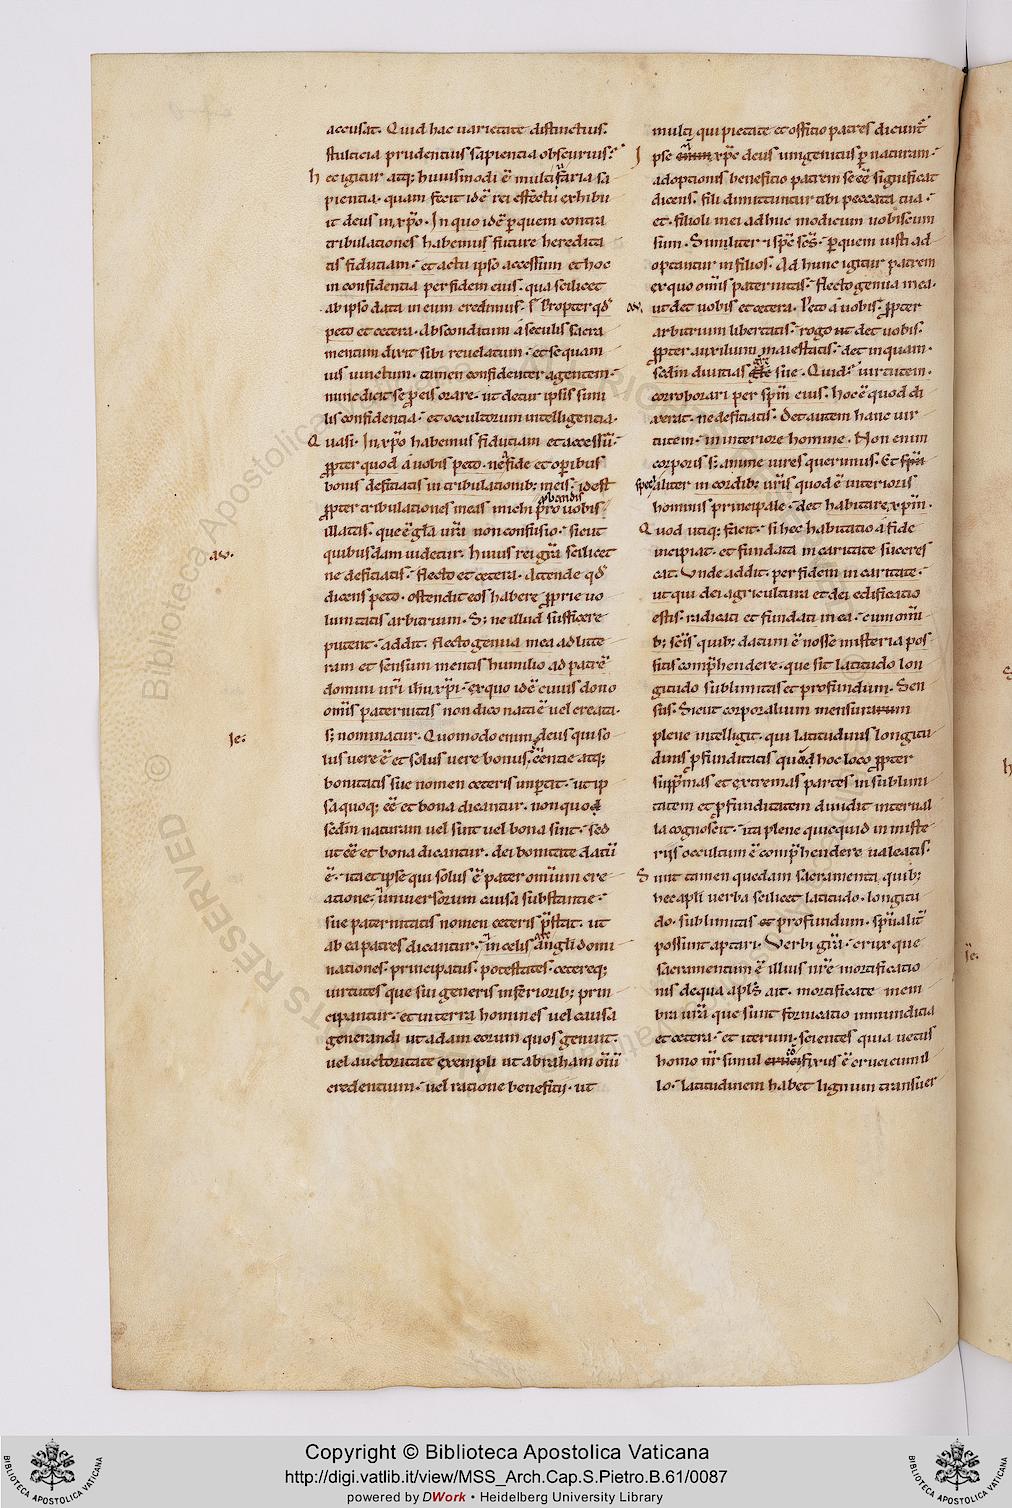 accusat. Quid hac uarietate distinctius.
stulticia prudentius sapientia obscurius.
hec igitur atq; huiusmodi ē multifaria sa
pientia. quam fecit idē rei effectu exhibu
it deus in xp̄o. In quo idē per quem contra
tribulationes habemus future heredita
tis fidutiam. et actu ipso accessum et hoc
in confidentia per fidem eius. qua scilicet
ab ipso data in eum credimus. Propter qd̄
peto et cetera. Absconditum á seculis sacra
mentum dixit sibi reuelatum. et se quam
uis uinctum. tamen confidenter agentem.
nunc dicit se ꝓ eis orare. ut detur ipsis simi
lis confidentia. et occultorum intelligentia.
Quasi. In xp̄o habemus fidutiam et accessū.
ꝓpter quod á uobis peto. ne fide et oꝑibus
bonis deficiatis in tribulationib; meis. id est
ꝓpter tribulationes meas michi pro uobis
illatas. que ē gl̄a ur̄a non confusio. sicut
aw. quibusdam uidetur. huius rei gr̄a scilicet
ne deficiatis. flecto et cetera. Attende qd̄
dicens peto. ostendit eos habere ꝓprie uo
luntatis arbitrium. S; ne illud sufficere
putent. addit. flecto genua mea ad litte
ram et sensum mentis humilio ad patrē
domini nr̄i ih̄u xp̄i. ex quo idē cuius dono
om̄is paternitas non dico nati ē uel creati.
Ie. s; nominatur. Quomodo enim deus qui so
lus uere ē et solus uere bonus. eēntie atq;
bonitatis sue nomen ceteris imꝑtit. ut ip
sa quoq; eē et bona dicantur. non quod
sedm̄ naturam uel sint uel bona sint. sed
ut eē et bona dicantur. dei bonitate datū
ē. ita et ipse qui solus ē pater omnium cre
atione. uniuersorum causa substantie.
sue paternitatis nomen ceteris p̄stat. ut
ab ea patres dicantur. in celis angli domi
nationes. principatus. potestates. cetereq;
uirtutes que sui generis inferiorib; prin
cipantur. et in terra homines uel causa
generandi ut adam eorum quos genuit.
uel auctoritate exempli ut abraham oīū
credentium. uel ratione beneficij. ut
multi qui pietate et offitio patres dicunt̄
Ipse xp̄c deus unigenitus ꝑ naturam.
adoptionis beneficio patrem se eē significat
dicens. fili dimittuntur tibi peccata tua.
et. filioli mei adhuc modicum uobiscum
sum. Similiter & sp̄c sc̄s. ꝑ quem iusti ad
optantur in filios. Ad hunc igitur patrem
ex quo om̄is paternitas. flecto genua mea.
aw. ut det uobis et cetera. Peto á uobis. ꝓpter
arbitrium libertatis. rogo ut det uobis.
ꝓpter auxilium maiestatis. det in quam.
sedm̄ diuitias gl̄e sue. Quid. uirtutem.
corroborari per sp̄m eius. hoc ē quod di
xerat. ne deficiatis. Det autem hanc uir
tutem. in interiore homine. Non enim
corporis s; anime uires querimus. Et
specialiter in cordib; ur̄is quod ē interioris
hominis principale. det habitare xp̄m.
Quod utiq; faciet. si hec habitatio á fide
incipiat. et fundata in caritate succres
cat. Vnde addit. per fidem in caritate.
ut qui dei agricultura et dei edificatio
estis. radicati et fundati in ea. cum omī
b; sc̄is quib; datum ē nosse misteria pos
sitis comp̄hendere. que sit latitudo lon
gitudo sublimitas et profundum. Sen
sus. Sicut corporalium mensuram
plene intelligit. qui latitudinis longitu
dinis ꝓfunditatis quod hoc loco ꝓpter
supp̄mas et extremas partes in sublimi
tatem et ꝓfunditatem diuidit interual
la cognoscit. ita plene quicquid in miste
riis occultum ē comp̄hendere ualeatis.
Sunt tamen quedam sacramenta. quib;
hec apl̄i uerba scilicet latitudo. longitu
do. sublimitas et profundum. sp̄ualit̄
possunt aptari. Verbi gr̄a. crux que
sacramentum ē illius nr̄e mortificatio
nis de qua apl̄s ait. mortificate mem
bra ur̄a que sunt fornicatio inmunditia
et cetera. et iterum. scientes quia uetus
homo nr̄ simul fixus ē cruci cum il
lo. latitudinem habet lignum transuer
Copyright © Biblioteca Apostolica Vaticana
http://digi.vatlib.it/view/MSS_Arch.Cap.S.Pietro.B.61/0087
powered by DWork • Heidelberg University Library
BIBLIOTECA APOSTOLICA VATICANA
BIBLIOTECA APOSTOLICA VATICANA